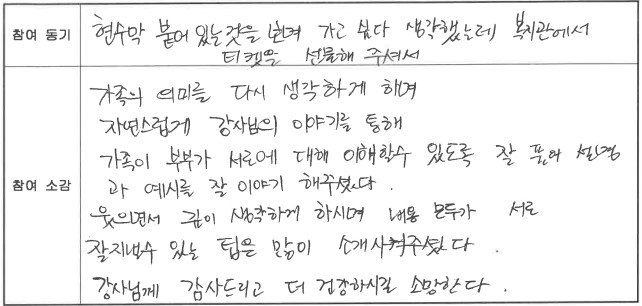 참여 동기
현수막 붙어 있는것을 보며 가고 싶다 생각했는데 복지관에서
티켓을 선물해 주셔서
참여 소감
가족의 의미를 다시 생각하게 해며
자연스럽게 강사님의 이야기를 통해
가족이 부부가 서로에 대해 이해할수 있도록 잘 풀어 설명
과 예시를 잘 이야기 해주셨다.
웃으면서 깊이 생각하게 하시며 내용 모두가 서로
잘지낼수 있는 팁을 많이 소개시켜주셨다.
강사님께 감사드리고 더 건강하시길 소망한다.